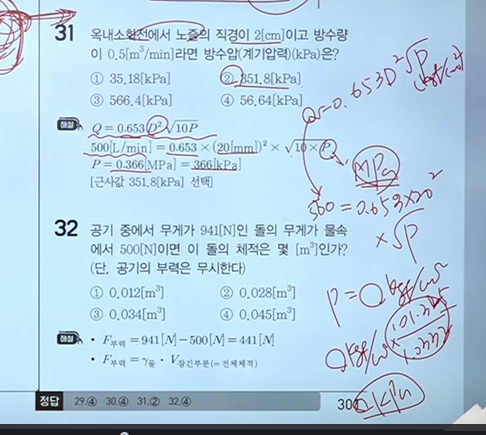 31 옥내소화전에서 노즐의 직경이 2[cm]이고 방수량
이 0.5[m³/min]라면 방수압(계기압력)(kPa)은?
① 35.18[kPa] ② 351.8[kPa]
③ 566.4[kPa] ④ 56.64[kPa]
해설 Q = 0.653D²√10P
500[L/min] = 0.653 × (20[mm])² × √10 × P
P = 0.366[MPa] = 366[kPa]
[근사값 351.8[kPa] 선택]
Q = 0.653D²√P
kgf/cm²
MPa
500 = 0.653×20²
×√P
P = Q kgf/cm²
Q kgf/cm² × 101.325
1.0332
kPa
32 공기 중에서 무게가 941[N]인 돌의 무게가 물속
에서 500[N]이면 이 돌의 체적은 몇 [m³]인가?
(단, 공기의 부력은 무시한다)
① 0.012[m³] ② 0.028[m³]
③ 0.034[m³] ④ 0.045[m³]
해설 • F부력 = 941[N]−500[N] = 441[N]
• F부력 = γ물 · V잠긴부분(=전체체적)
정답 29.④ 30.④ 31.② 32.④